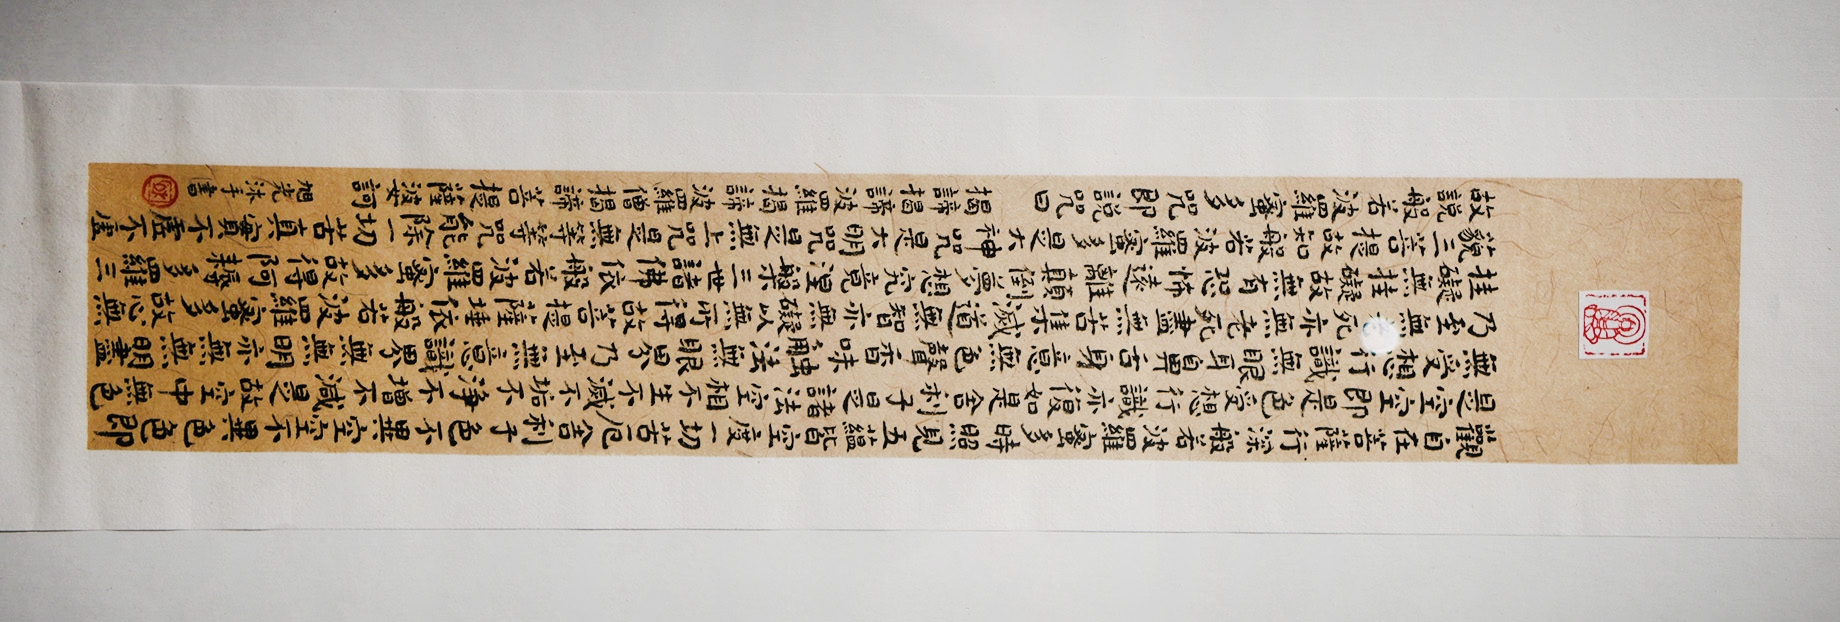 觀自在菩薩行深般若波羅蜜多時照見五蘊皆空度一切苦厄舍利子色不異空空不異色色即
是空空即是色受想行識亦復如是舍利子是諸法空相不生不滅不垢不淨不增不減是故空中無色
無受想行識無眼耳鼻舌身意無色聲香味觸法無眼界乃至無意識界無無明亦無無明盡
乃至無死亦無老死盡無苦集滅道無智亦無礙以無所得故菩提薩埵依般若波羅蜜多故心無
挂礙無挂礙故無有恐怖遠離顛倒夢想究竟涅槃三世諸佛依般若波羅蜜多故得阿耨多羅三
藐三菩提故知般若波羅蜜多是大神咒是大明咒是無上咒是無等等咒能除一切苦真實不虛不虛
故說般若波羅蜜多咒即說咒曰 揭諦揭諦波羅揭諦波羅僧揭諦菩提薩婆訶 旭光沐手書